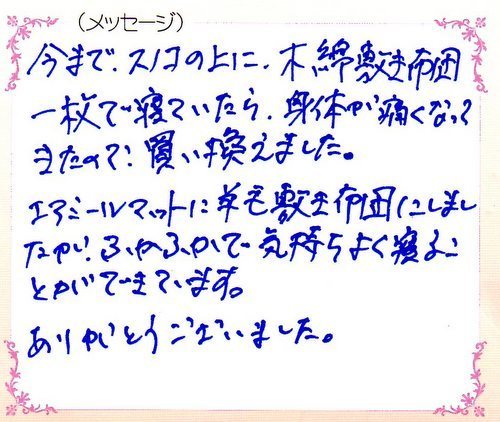 (メッセージ)
今まで、スノコの上に、木綿敷き布団
一枚で寝ていたら、身体が痛くなって
きたので、買い換えました。
エアシールマットに羊毛敷き布団にしまし
たが、ふかふかで気持ちよく寝るこ
とができています。
ありがとうございました。